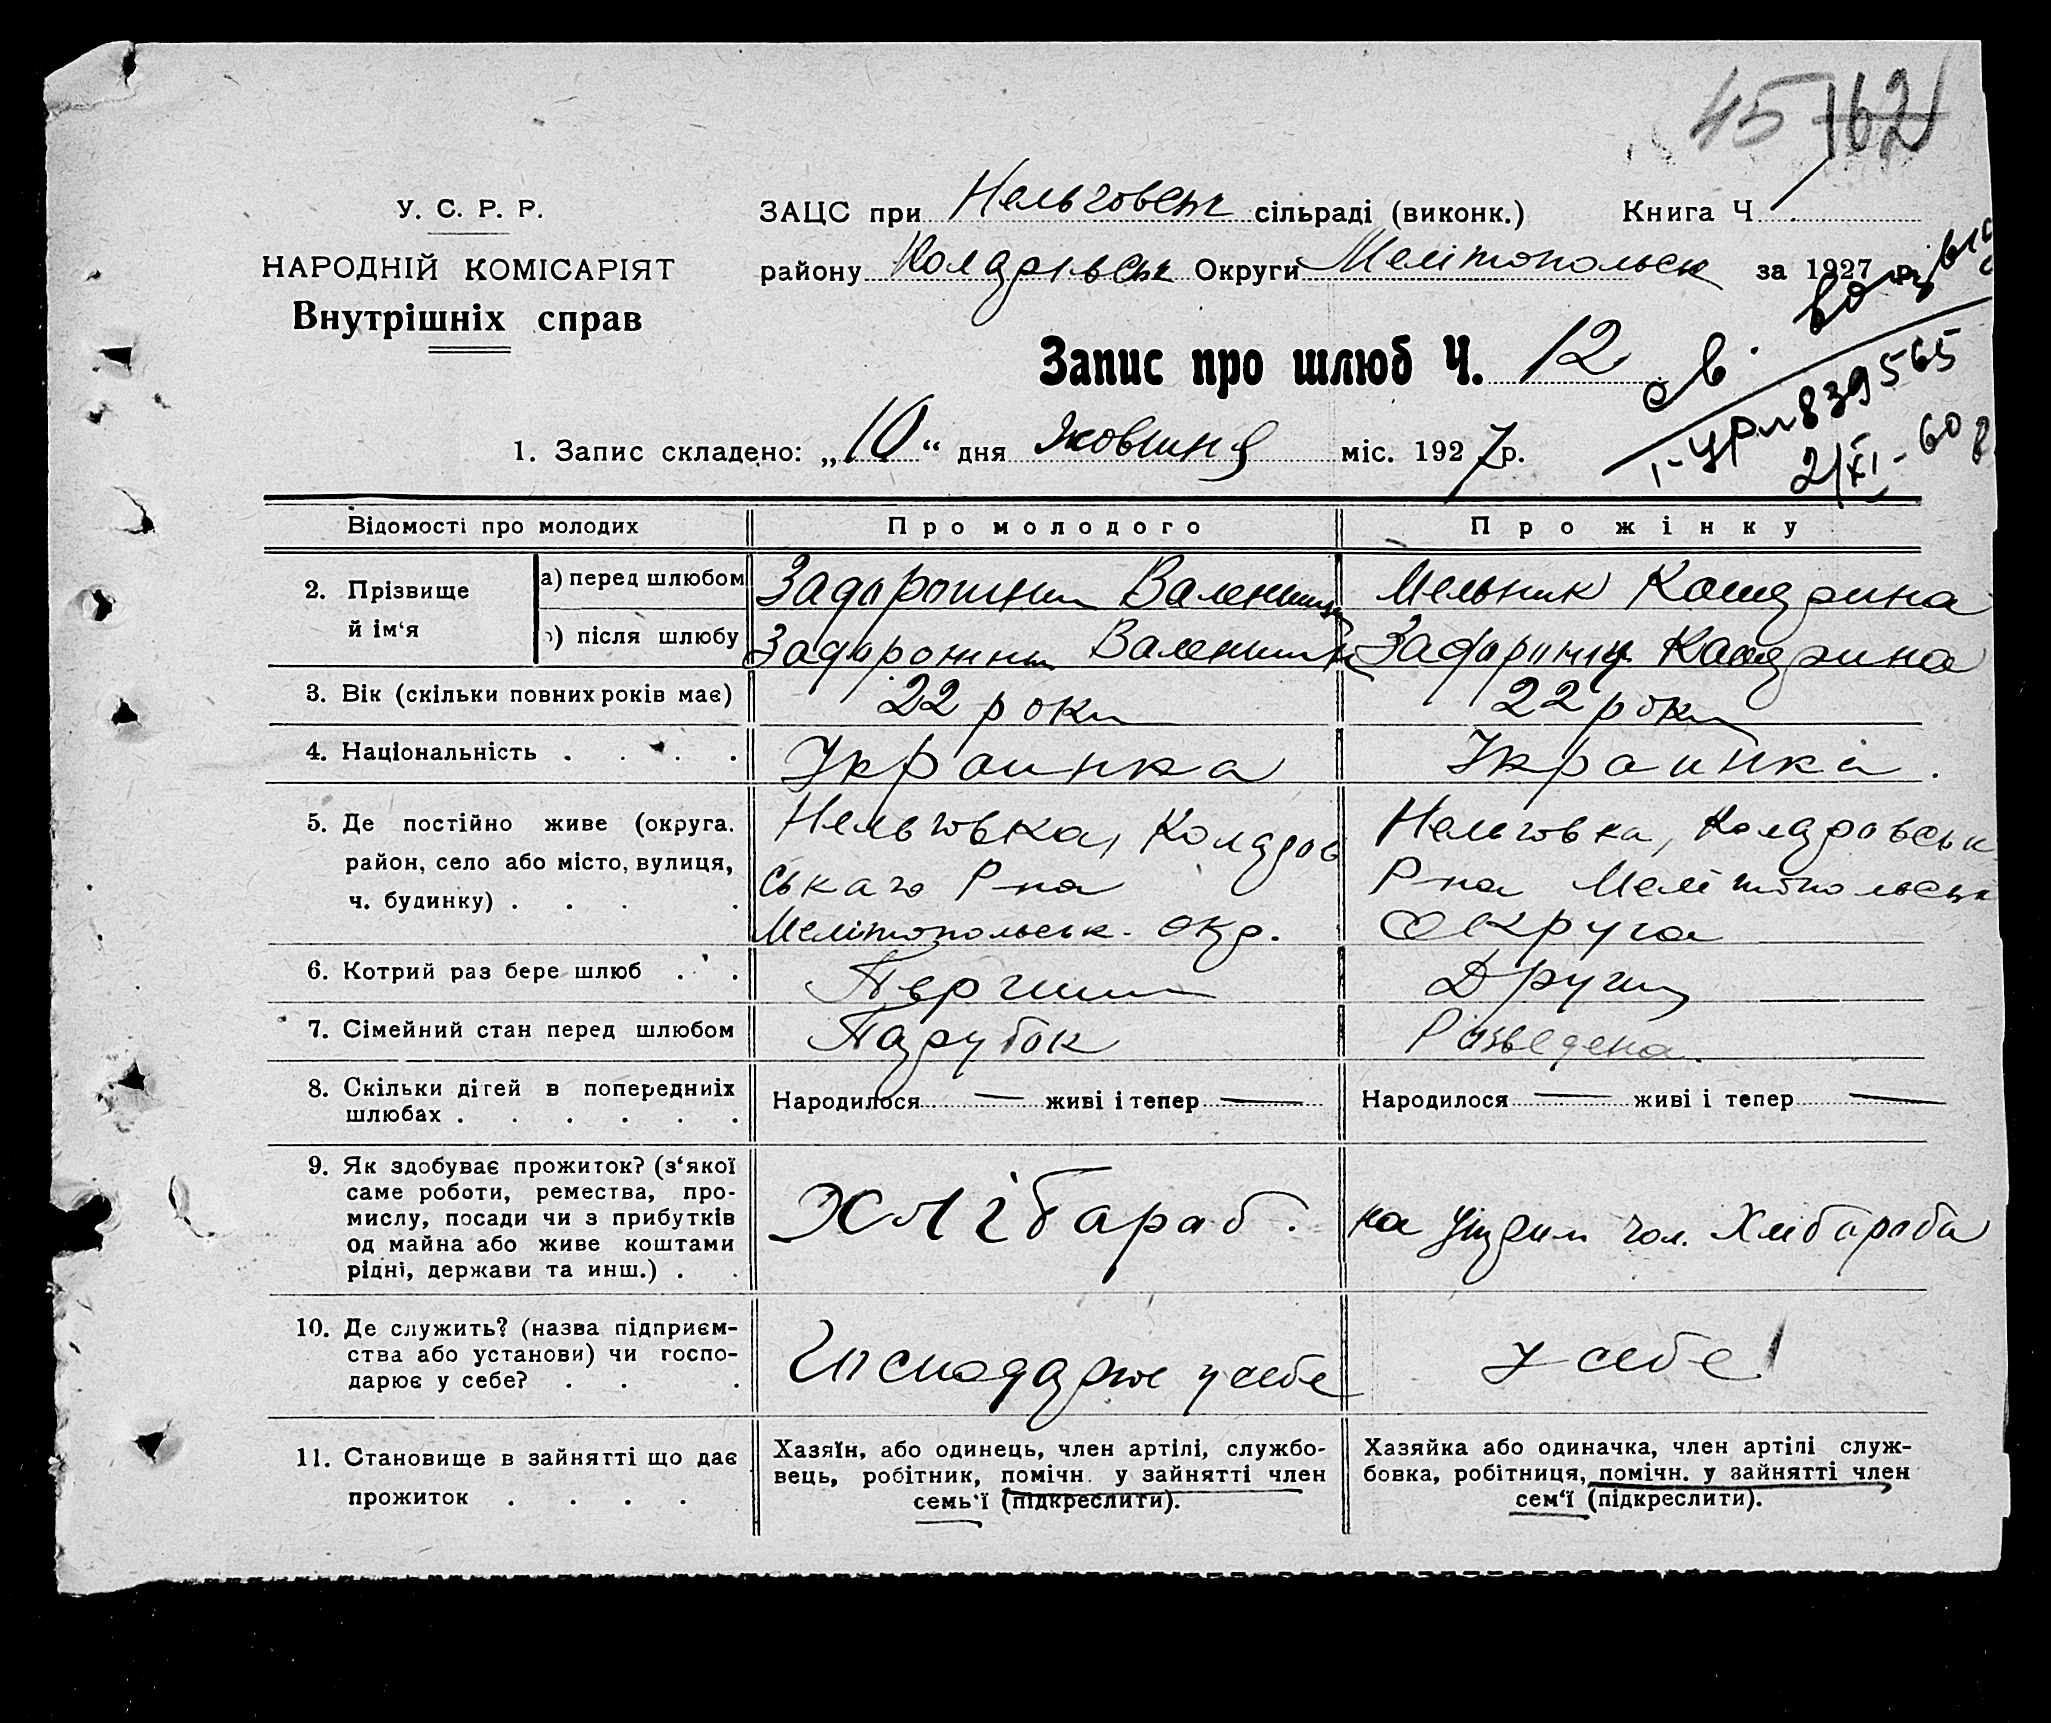 45 162
У. С. Р. Р.
НАРОДНІЙ КОМІСАРІЯТ
Внутрішніх справ
ЗАЦС при Нельговськ сільраді (виконк.) Книга Ч
району Округи Мелітопольськ за 1927 р.
Запис про шлюб Ч. 12
1-УРЛ 839565
2/XI-60
1. Запис складено: „10“ дня жовтня міс. 1927 р.
Відомості про молодих Про молодого Про жінку
2. Прізвище й ім‘я
а) перед шлюбом Задорожни Валентин Мельник Катерина
б) після шлюбу Задорожни Валентин Катерина
3. Вік (скільки повних років має) 22 роки 22 роки
4. Національність . . . . Украинка Украинка.
5. Де постійно живе (округа. Нельговка, Нельговка,
район, село або місто, вулиця, ського Р-на Р-на Мелітопольськ
ч. будинку) . . . . Мелітопольськ. окр. Округа
6. Котрий раз бере шлюб . . Перший Други
7. Сімейний стан перед шлюбом Парубок Розведена.
8. Скільки дітей в попередниіх Народилося — живі і тепер — Народилося — живі і тепер —
шлюбах . . . . . .
9. Як здобуває прожиток? (з‘якої
саме роботи, ремества, про-
мислу, посади чи з прибутків
од майна або живе коштами
рідні, держави та инш.) . .
Хлібараб. на чол. Хлібараба
10. Де служить? (назва підприєм-
ства або установи) чи госпо-
дарює у себе? . . .
Господарює у себе у себе
11. Становище в зайнятті що дає
прожиток . . . .
Хазяїн, або одинець, член артілі, службо-
вець, робітник, помічн. у зайнятті член
семь‘ї (підкреслити).
Хазяйка або одиначка, член артілі служ-
бовка, робітниця, помічн. у зайнятті член
сем‘ї (підкреслити).